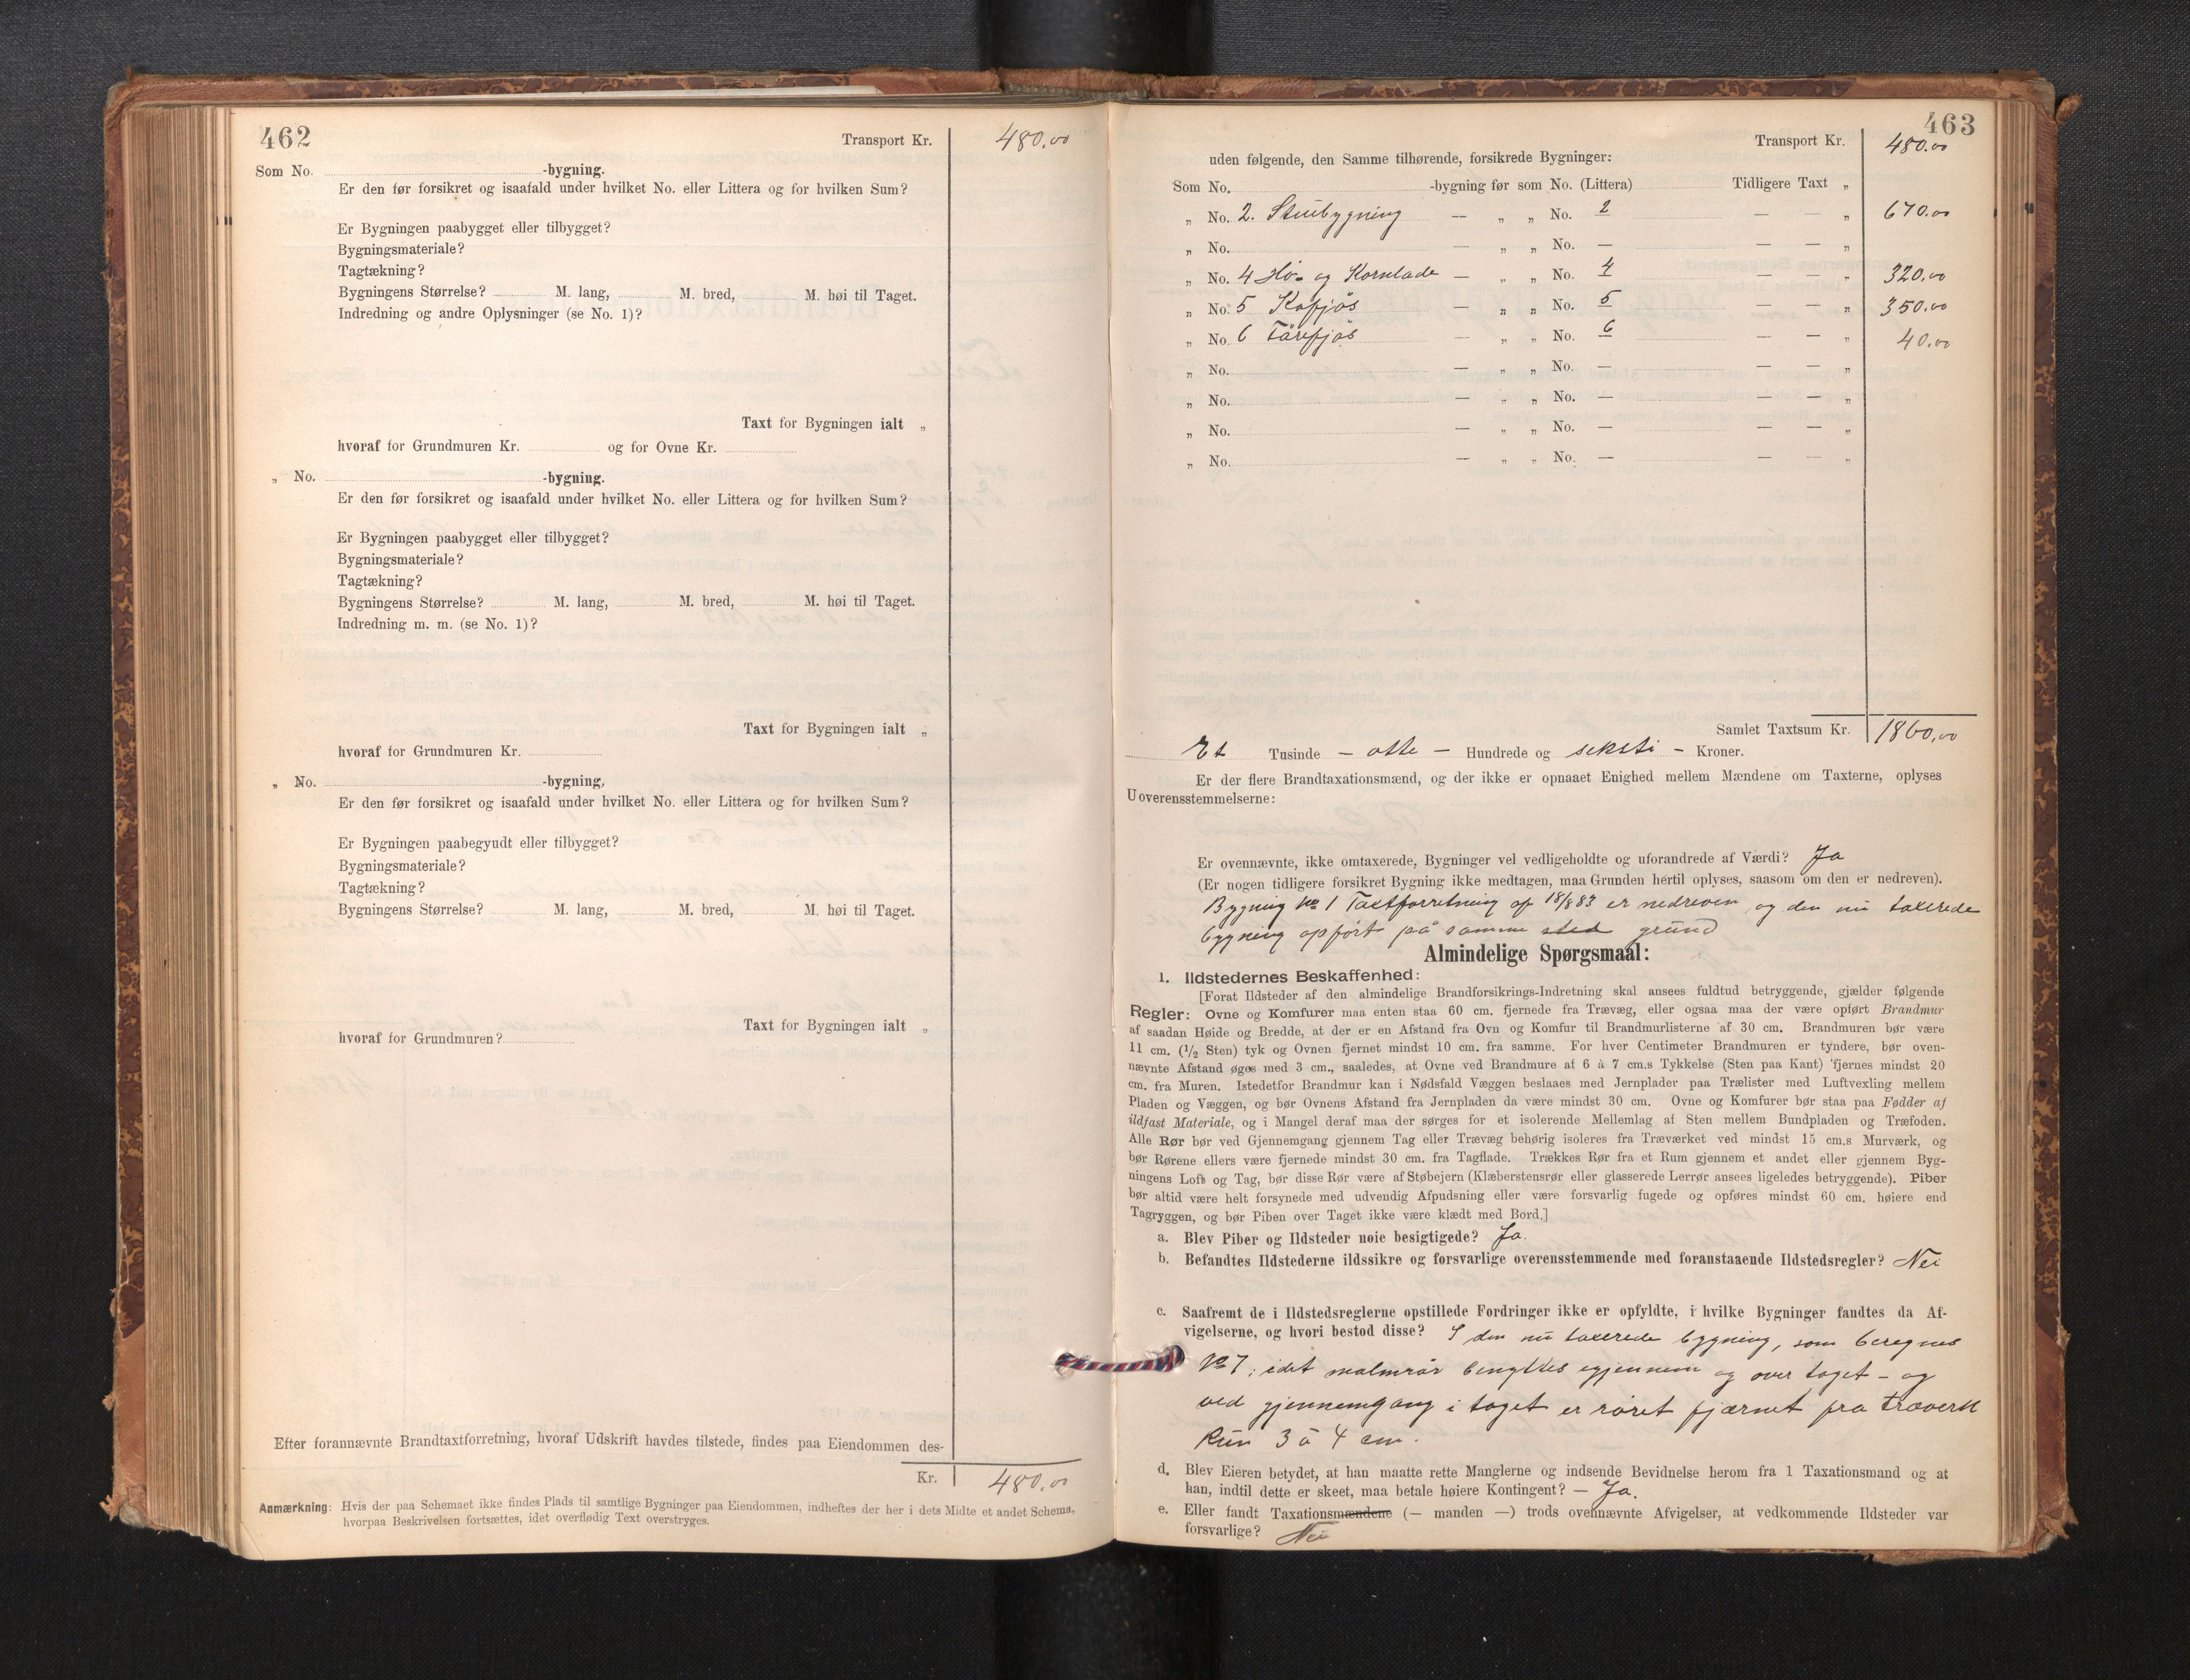 462
Transport Kr. 480.00
Som No. -bygning.
Er den før forsikret og isaafald under hvilket No. eller Littera og for hvilken Sum?
Er Bygningen paabygget eller tilbygget?
Bygningsmateriale?
Tagtækning?
Bygningens Størrelse? M. lang, M. bred, M. høi til Taget.
Indredning og andre Oplysninger (se No. 1)?
Taxt for Bygningen ialt „
hvoraf for Grundmuren Kr. og for Ovne Kr.
„ No. -bygning.
Er den før forsikret og isaafald under hvilket No. eller Littera og for hvilken Sum?
Er Bygningen paabygget eller tilbygget?
Bygningsmateriale?
Tagtækning?
Bygningens Størrelse? M. lang, M. bred, M. høi til Taget.
Indredning m. m. (se No. 1)?
Taxt for Bygningen ialt „
hvoraf for Grundmuren Kr.
„ No. -bygning,
Er den før forsikret og isaafald under hvilket No. eller Littera og for hvilken Sum?
Er Bygningen paabegyudt eller tilbygget?
Bygningsmateriale?
Tagtækning?
Bygningens Størrelse? M. lang, M. bred, M. høi til Taget.
Taxt for Bygningen ialt „
hvoraf for Grundmuren?
Efter forannævnte Brandtaxtforretning, hvoraf Udskrift havdes tilstede, findes paa Eiendommen des-
Kr. 480.00
Anmærkning: Hvis der paa Schemaet ikke findes Plads til samtlige Bygninger paa Eiendommen, indheftes der her i dets Midte et andet Schema,
hvorpaa Beskrivelsen fortsættes, idet overflødig Text overstryges.
463
Transport Kr. 480.00
uden følgende, den Samme tilhørende, forsikrede Bygninger:
Som No. -bygning før som No. (Littera) Tidligere Taxt „
„ No. 2. Stuebygning — „ „ No. 2 — — „ 670.00
„ No. — „ „ No. — — — „
„ No. 4 Hö- og Kornlade — „ „ No. 4 — — „ 320.00
„ No. 5 Kofjös — „ „ No. 5 — — „ 350.00
„ No. 6 Fårefjös — „ „ No. 6 — — „ 40.00
„ No. — „ „ No. — — — „
„ No. — „ „ No. — — — „
„ No. — „ „ No. — — — „
„ No. — „ „ No. — — — „
Samlet Taxtsum Kr. 1860.00
Et Tusinde – otte – Hundrede og seksti – Kroner.
Er der flere Brandtaxationsmænd, og der ikke er opnaaet Enighed mellem Mændene om Taxterne, oplyses
Uoverensstemmelserne:
Er ovennævnte, ikke omtaxerede, Bygninger vel vedligeholdte og uforandrede af Værdi? Ja
(Er nogen tidligere forsikret Bygning ikke medtagen, maa Grunden hertil oplyses, saasom om den er nedreven).
Bygning No 1 Taxtforretning af 18/8 83 er nedreven og den nu taxerede
bygning opført på samme sted grund
Almindelige Spørgsmaal:
1. Ildstedernes Beskaffenhed:
[Forat Ildsteder af den almindelige Brandforsikrings-Indretning skal ansees fuldtud betryggende, gjælder følgende
Regler: Ovne og Komfurer maa enten staa 60 cm. fjernede fra Trævæg, eller ogsaa maa der være opført Brandmur
af saadan Høide og Bredde, at der er en Afstand fra Ovn og Komfur til Brandmurlisterne af 30 cm. Brandmuren bør være
11 cm. (1/2 Sten) tyk og Ovnen fjernet mindst 10 cm. fra samme. For hver Centimeter Brandmuren er tyndere, bør oven-
nævnte Afstand øges med 3 cm., saaledes, at Ovne ved Brandmure af 6 à 7 cm.s Tykkelse (Sten paa Kant) fjernes mindst 20
cm. fra Muren. Istedetfor Brandmur kan i Nødsfald Væggen beslaaes med Jernplader paa Trælister med Luftvexling mellem
Pladen og Væggen, og bør Ovnens Afstand fra Jernpladen da være mindst 30 cm. Ovne og Komfurer bør staa paa Fødder af
ildfast Materiale, og i Mangel deraf maa der sørges for et isolerende Mellemlag af Sten mellem Bundpladen og Træfoden.
Alle Rør bør ved Gjennemgang gjennem Tag eller Trævæg behørig isoleres fra Træværket ved mindst 15 cm.s Murværk, og
bør Rørene ellers være fjernede mindst 30 cm. fra Tagflade. Trækkes Rør fra et Rum gjennem et andet eller gjennem Byg-
ningens Loft og Tag, bør disse Rør være af Støbejern (Klæberstensrør eller glasserede Lerrør ansees ligeledes betryggende). Piber
bør altid være helt forsynede med udvendig Afpudsning eller være forsvarlig fugede og opføres mindst 60 cm. høiere end
Tagryggen, og bør Piben over Taget ikke være klædt med Bord.]
a. Blev Piber og Ildsteder nøie besigtigede? Ja.
b. Befandtes Ildstederne ildssikre og forsvarlige overensstemmende med foranstaaende Ildstedsregler? Nei
c. Saafremt de i Ildstedsreglerne opstillede Fordringer ikke er opfyldte, i hvilke Bygninger fandtes da Af-
vigelserne, og hvori bestod disse? I den nu taxerede bygning, som beregnes
No 7; idet malmrör benyttes igjennem og over taget – og
ved gjennemgang i taget er röret fjærnet fra træverk
kun 3 à 4 cm.
d. Blev Eieren betydet, at han maatte rette Manglerne og indsende Bevidnelse herom fra 1 Taxationsmand og at
han, indtil dette er skeet, maa betale høiere Kontingent? – Ja.
e. Eller fandt Taxationsmændene (— manden —) trods ovennævnte Afvigelser, at vedkommende Ildsteder var
forsvarlige? Nei